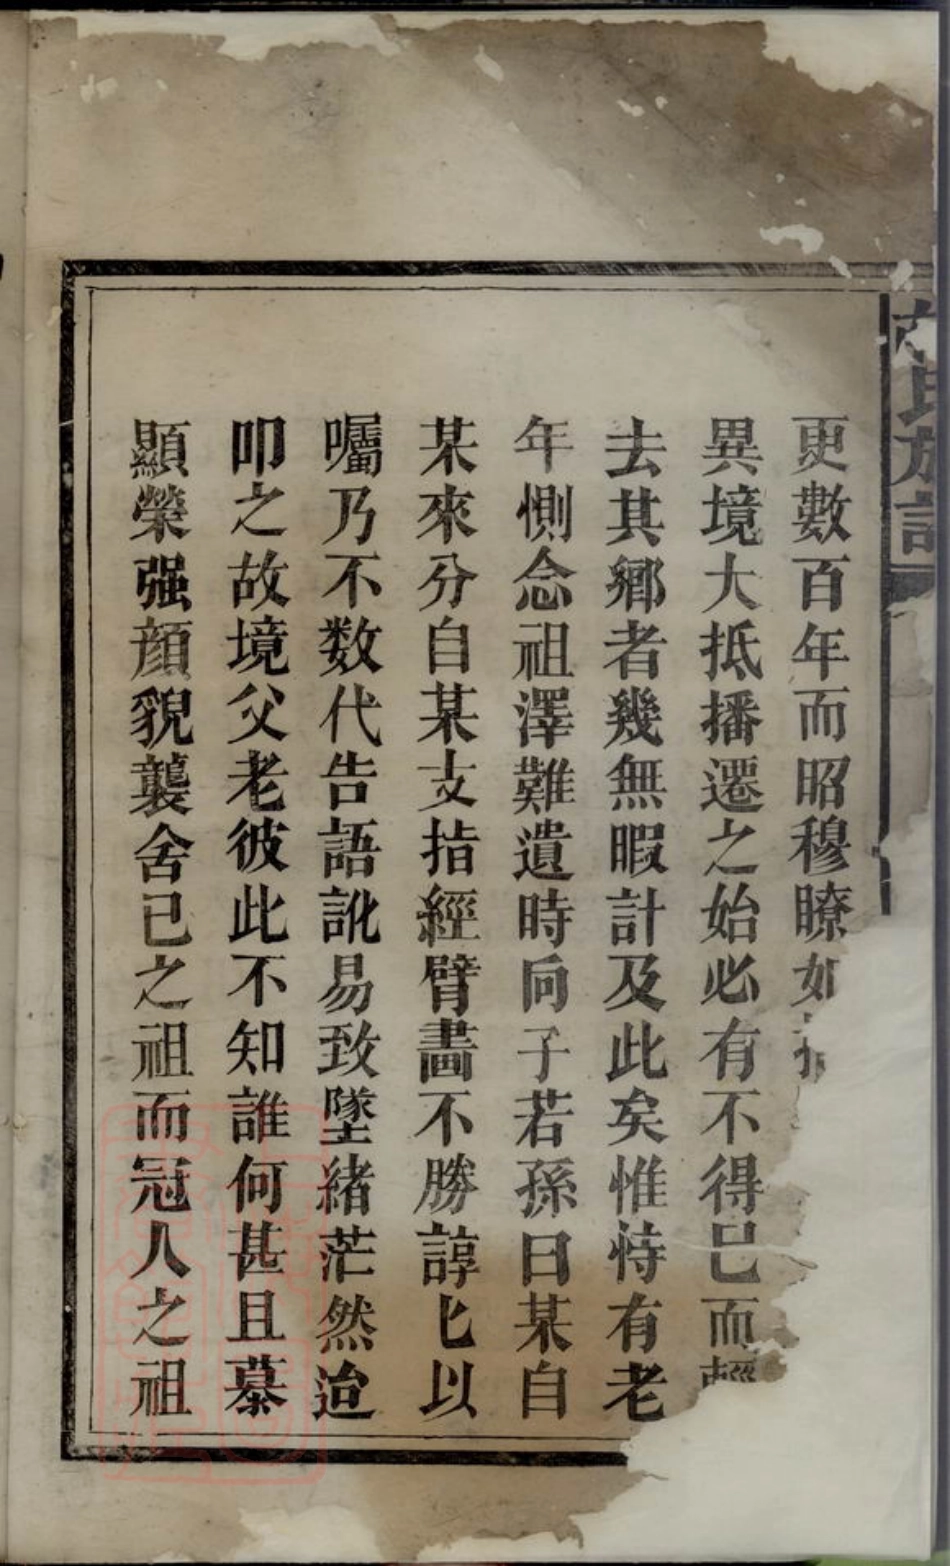 氏族譜
更數百年而昭穆瞭如指
異境大抵播遷之始必有不得已而輕
去其鄉者幾無暇計及此矣惟恃有老
年惻念祖澤難遺時向子若孫曰某自
某來分自某支指經臂畵不勝諄匕以
囑乃不数代告語訛易致墜緒茫然迨
叩之故境父老彼此不知誰何甚且慕
顯榮强顔貌襲舍已之祖而冠人之祖